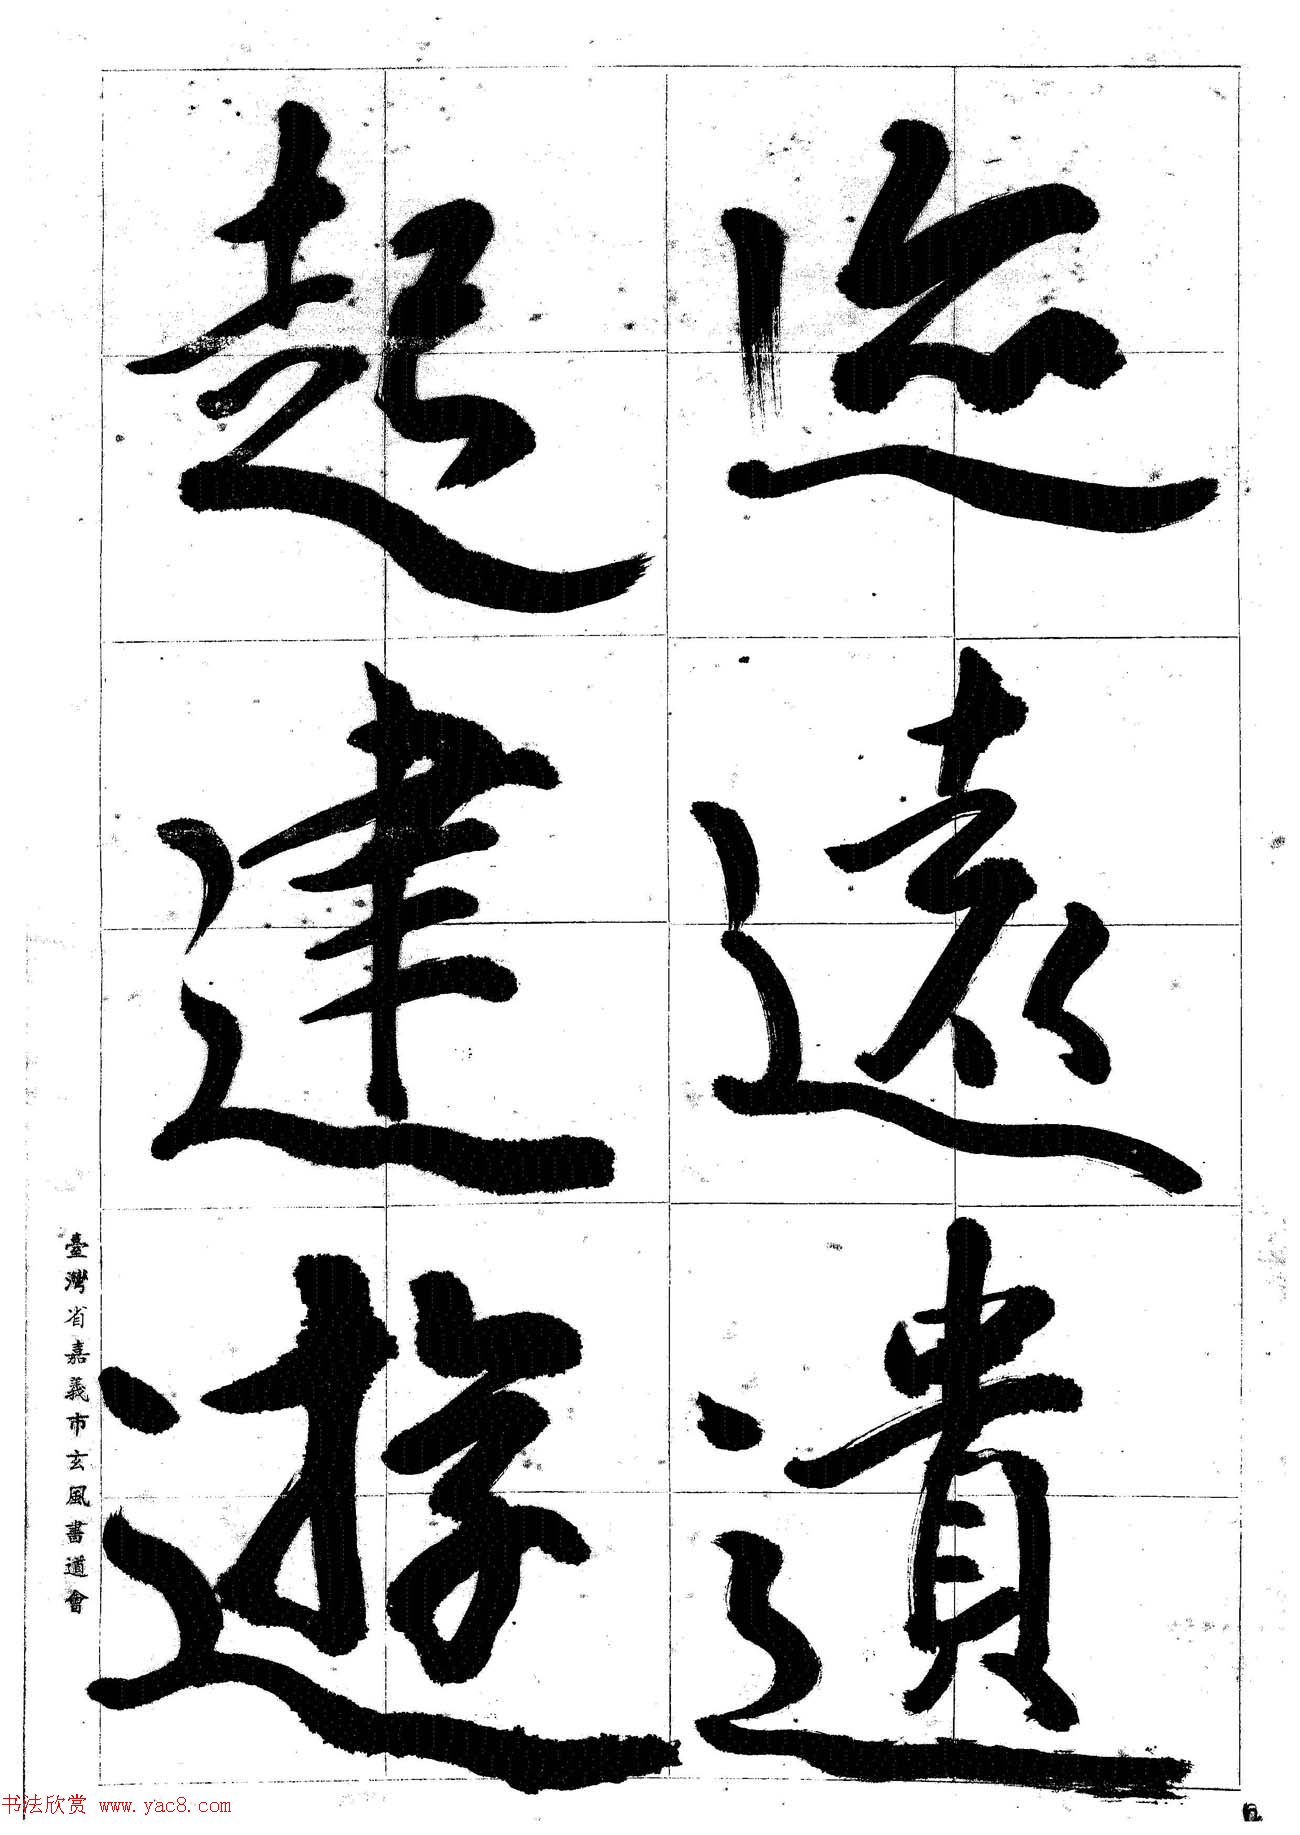 遠
遺
起
建
遊
臺灣省嘉義市玄風書道會
书法欣赏 www.yac8.com